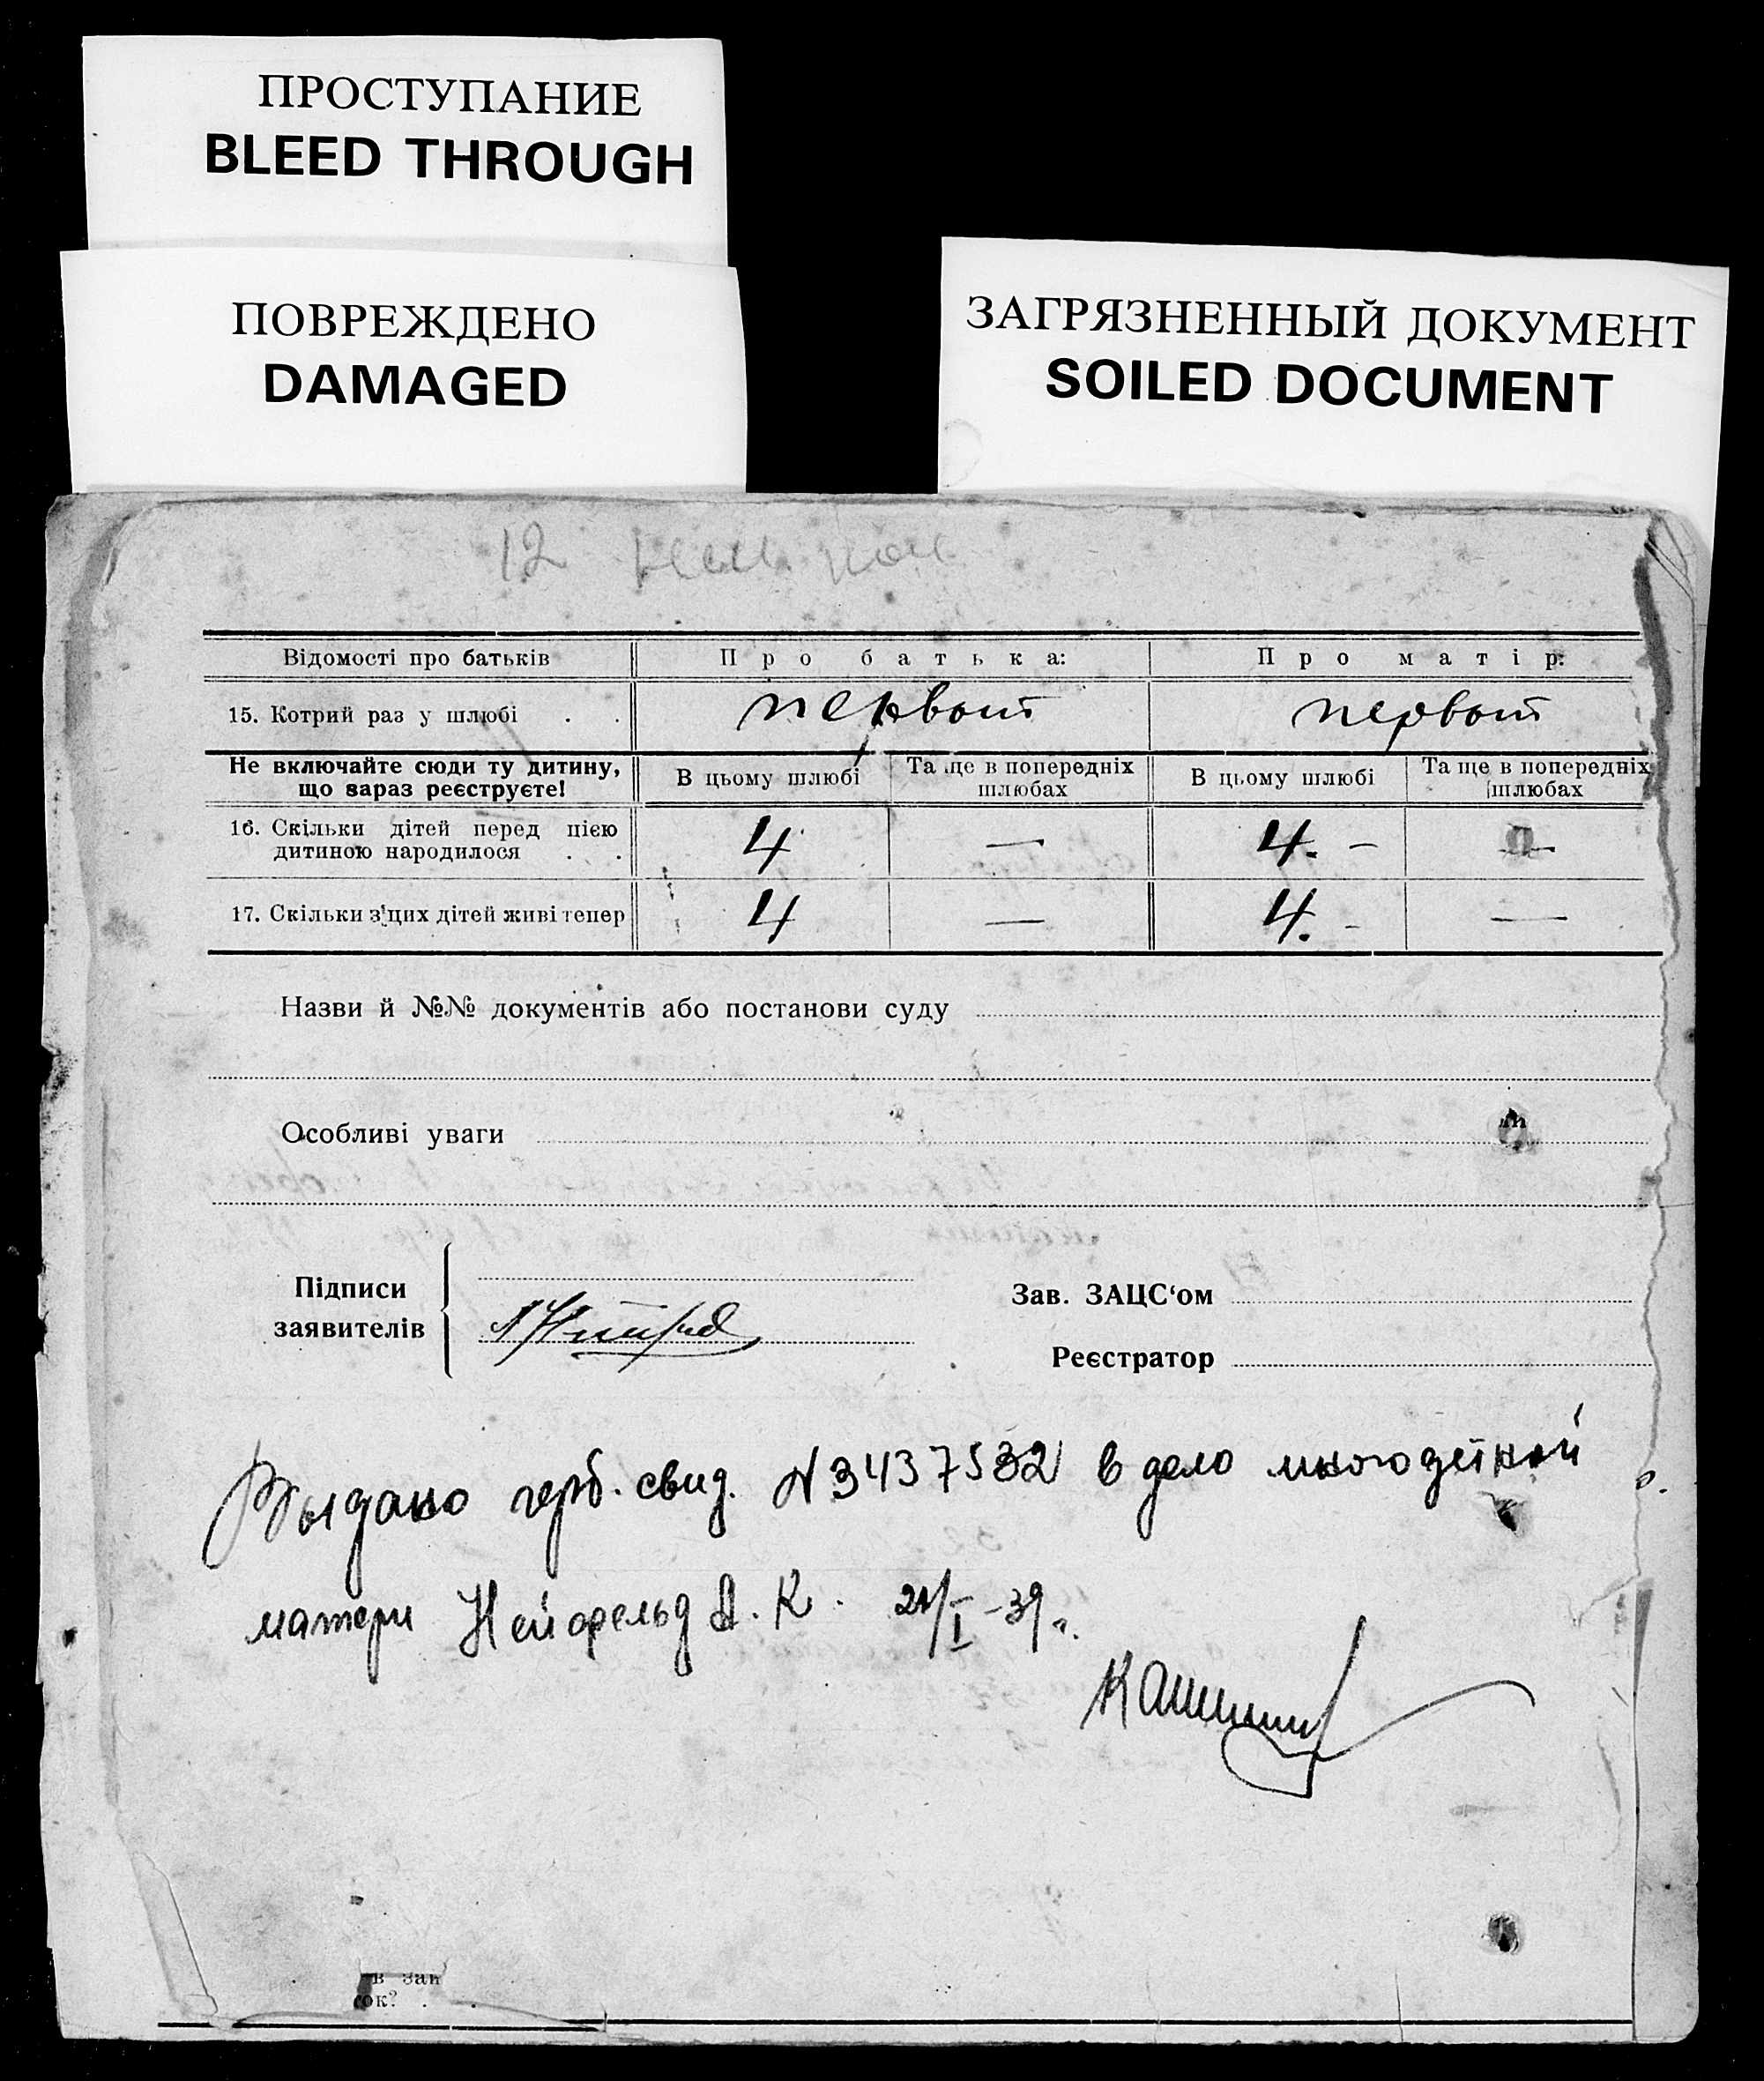 ПРОСТУПАНИЕ
BLEED THROUGH
ПОВРЕЖДЕНО
DAMAGED
ЗАГРЯЗНЕННЫЙ ДОКУМЕНТ
SOILED DOCUMENT
12
Відомості про батьків Про батька: Про матір:
15. Котрий раз у шлюбі . . первом первом
Не включайте сюди ту дитину, що зараз реєструєте! В цьому шлюбі Та ще в попередніх шлюбах В цьому шлюбі Та ще в попередніх шлюбах
16. Скільки дітей перед цією дитиною народилося . . 4 — 4. — —
17. Скільки з'цих дітей живі тепер 4 — 4. - —
Назви й №№ документів або постанови суду
Особливі уваги
Підписи заявителів
Зав. ЗАЦС‘ом
Реєстратор
Выдано герб. свид. N3437532 в дело многодетной
матери Нейфельд А. К. 21/I-39 г.
в зап
ок? .